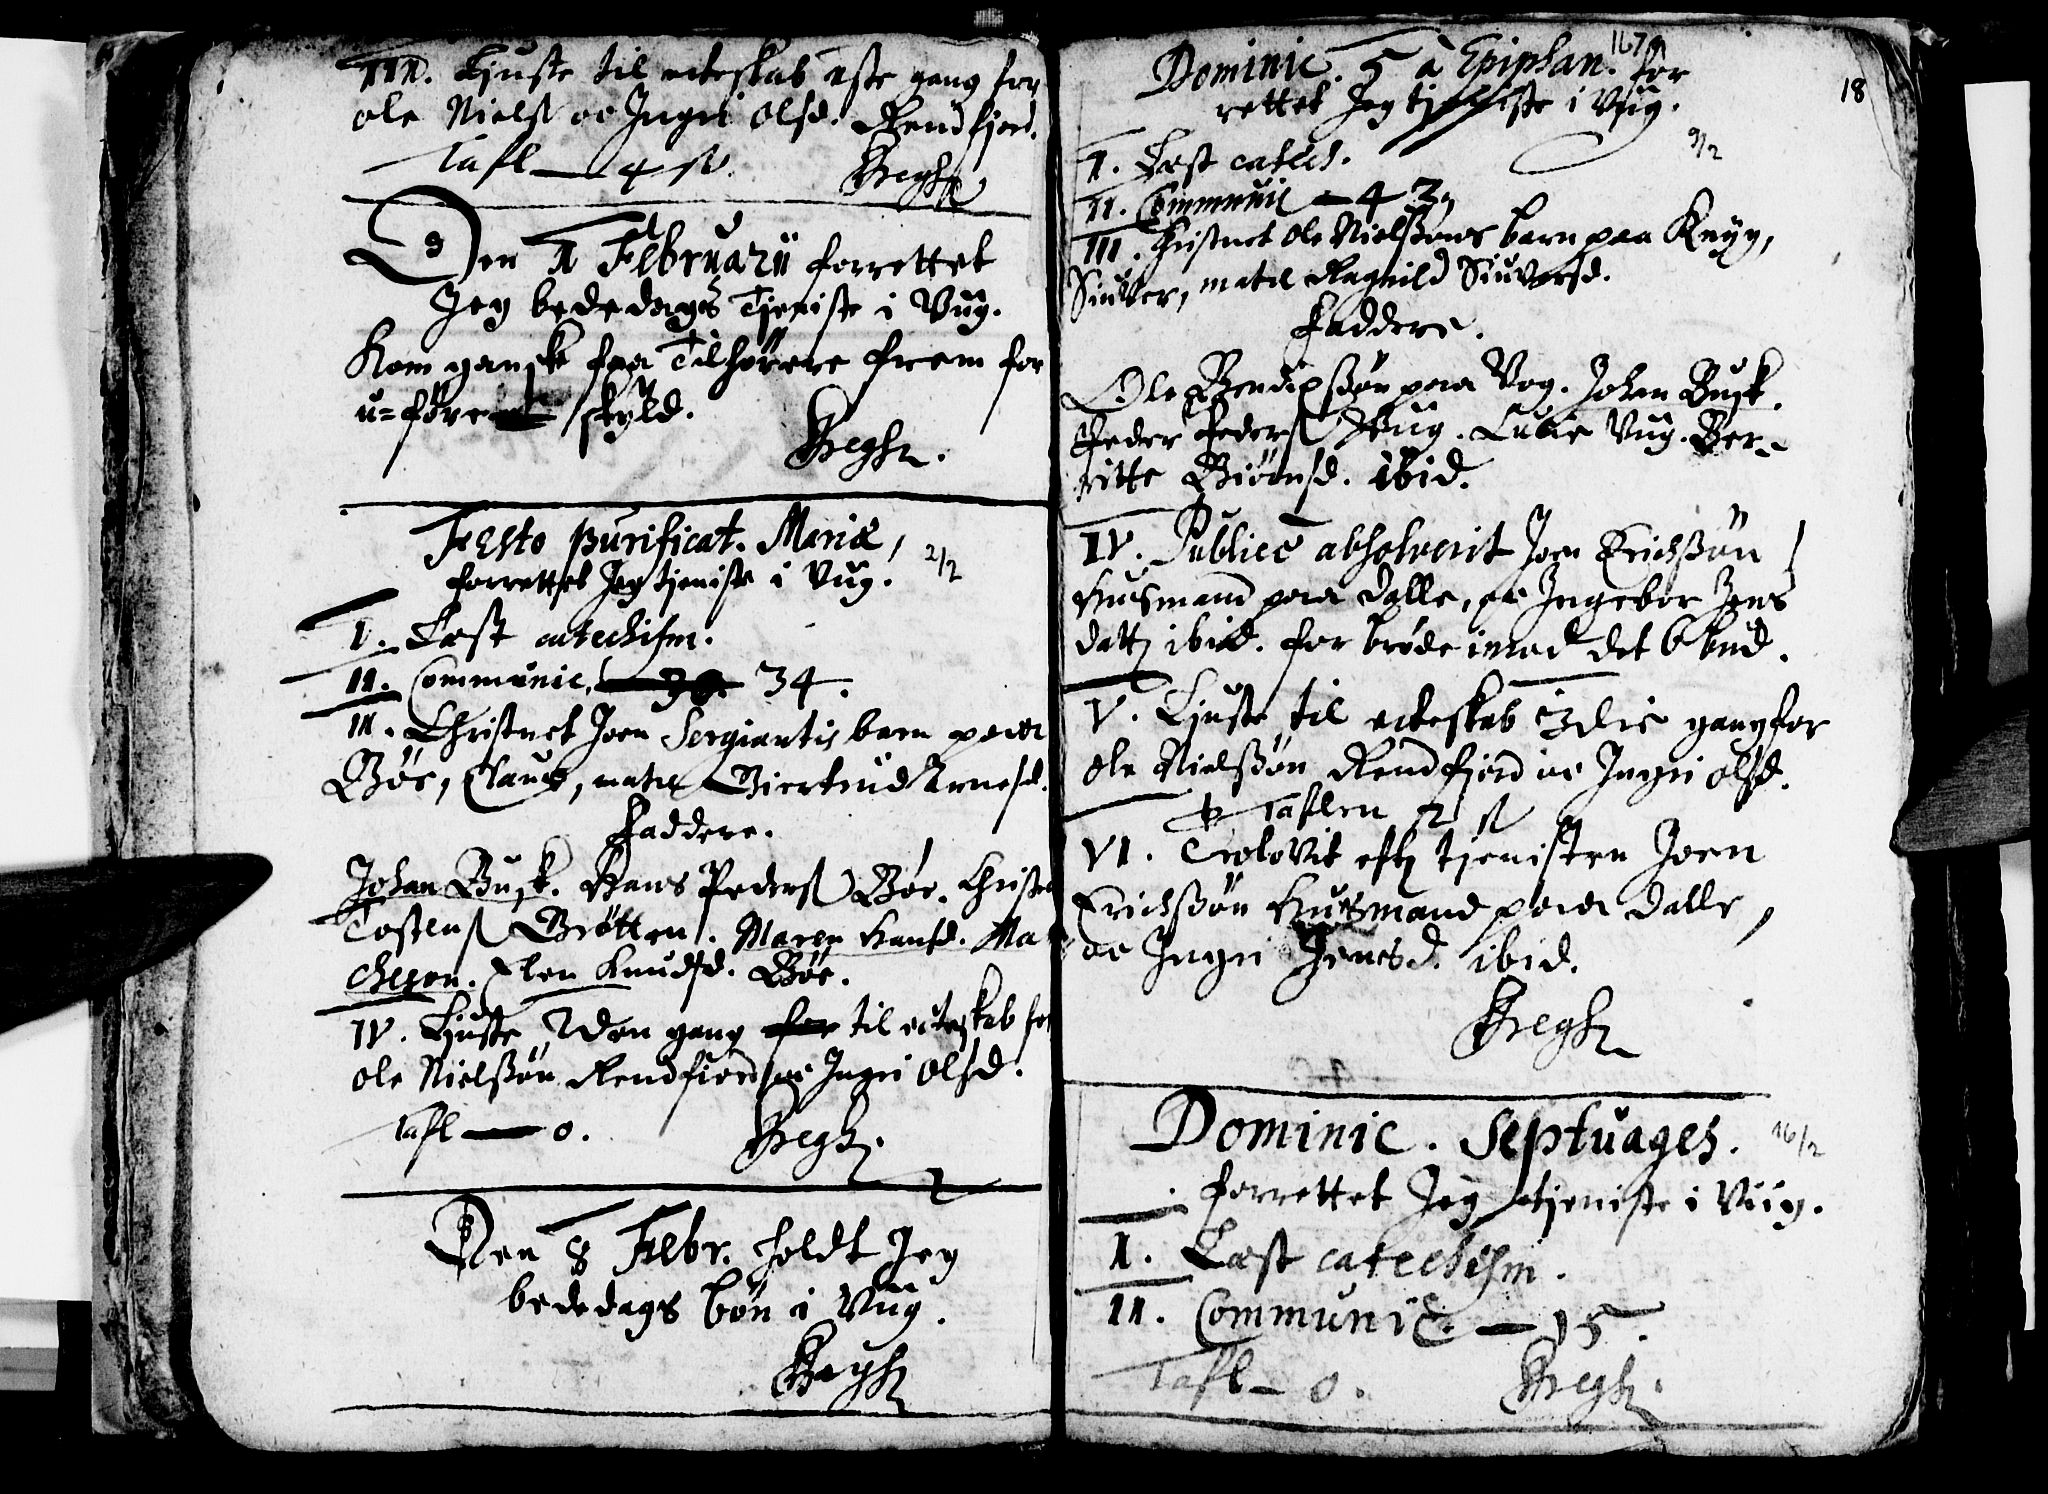 III. Liuste til ecteskab 1ste gang for
ole Niels oc Ingri olsd. Rendfjord.
Tafl — 4 sk.
Den 1 Februarii forrettet
Jeg bededags Tjeniste i Vug.
Kom ganske faa Tilhörere frem for
u=före skyld.
Festo purificat. Mariæ,
forrettet Jeg tjeniste i Vug. 2/2
I. Læst catechism.
II. Communic. 34.
III. Christnet Joen Sergiantis barn paa
Böe, Claus, mater Giertrud Arnesd.
Faddere.
Johan Busk. Hans Peders Böe. Christen
Tostens Brötten. Maren Hansd. Ma
chesen. Elen Knudsd. Böe.
IV. Liuste 2den gang for til ecteskab for
ole Nielssön Rendfjord oc Ingri Olsd.
Tafl — 0.
Den 8 Febr. holdt Jeg
bededags bön i Vug.
Dominic. 5 à Epiphan. for
1679
18
rettet Jeg tjeniste i Vug.
9/2
I. Læst catech.
II. Communic — 43.
III. Christnet Ole Nielssöns barn paa
Siuver, mater Ragnild Siuversd.
Faddere.
Ole Bendixssön paa Vog. Johan Busk.
Peder Peders Vug. Vug. Ber-
ritte Biörnsd. ibid.
IV. Publicè absolverit Joen Erichssön
Husmand paa Dalle, oc Ingebor Jens
datter ibid. for bröde imod det 6 bud.
V. Liuste til ecteskab 3die gang for
ole Nielssön Rendfjord oc Ingri olsd.
Taflen 2 s
VI. Trolovit efter tjenisten Joen
Erichssön Husmand paa Dalle,
oc Ingri Jensd. ibid.
Dominic. Septuages. 16/2
forrettet Jeg tjeniste i Vug.
I. Læst catechism.
II. Communic. — 15.
Tafl — 0.